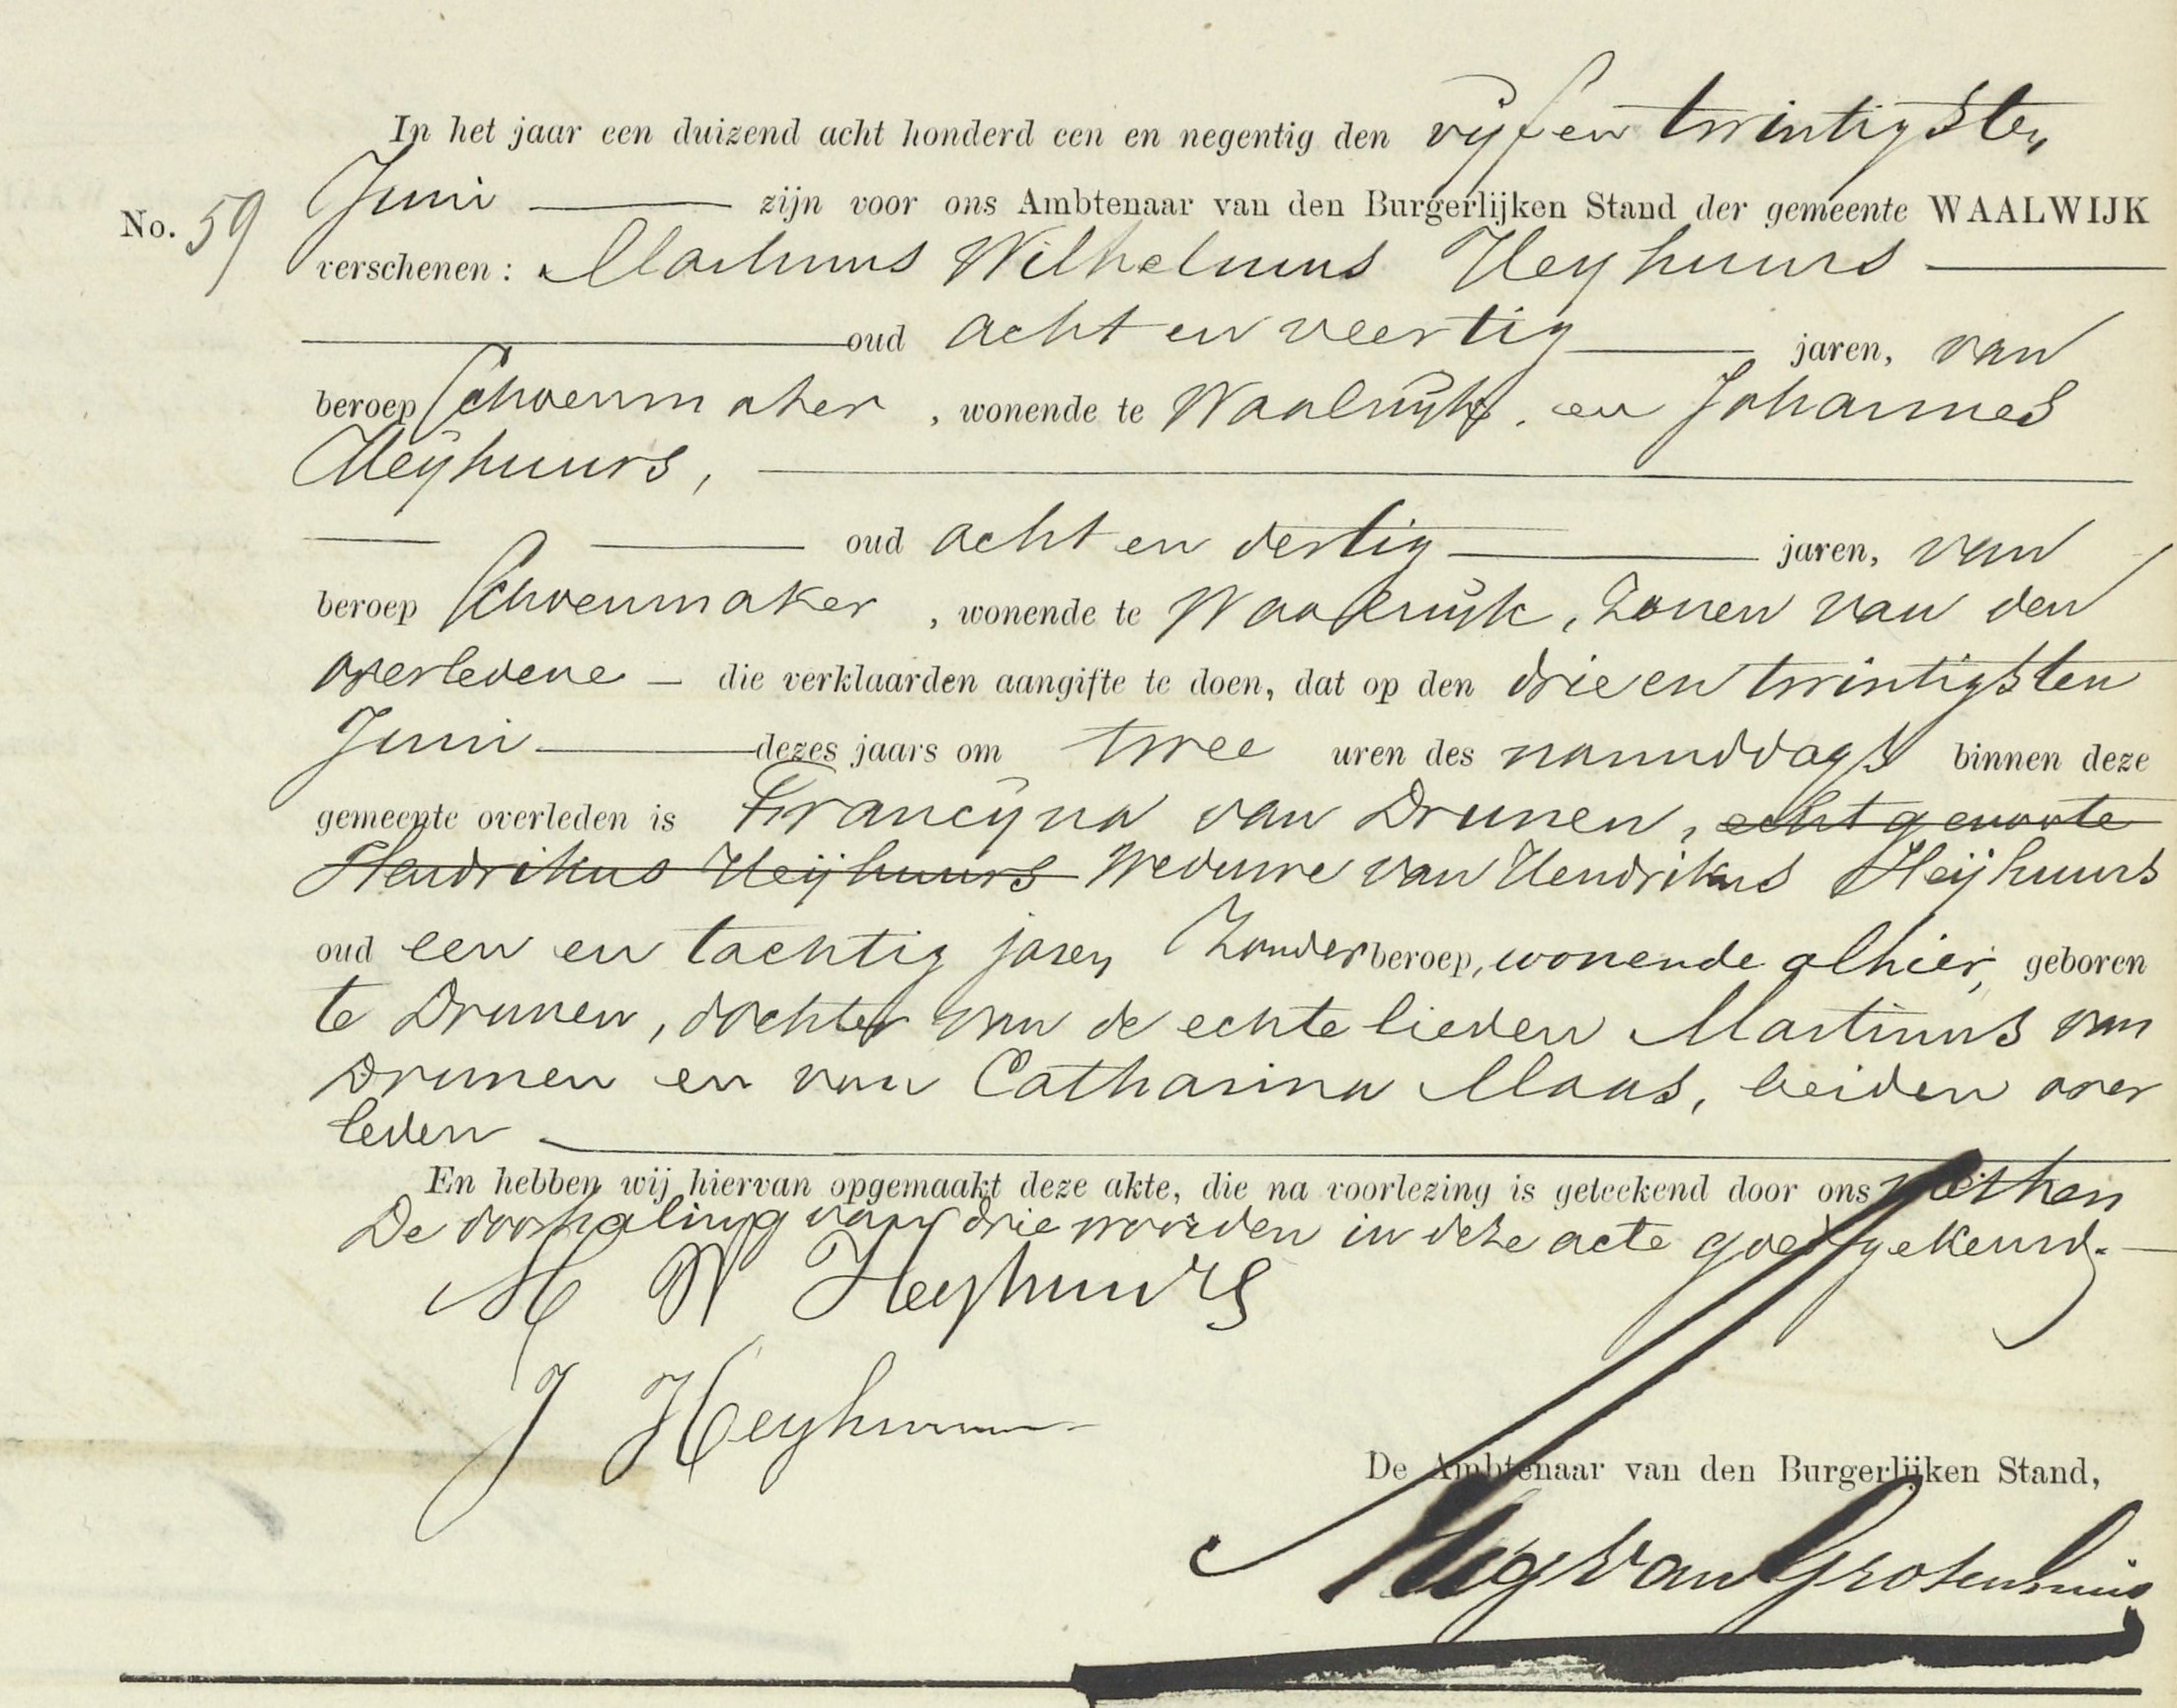 In het jaar een duizend acht honderd een en negentig den vijf en twintigsten
No. 59 Juni zijn voor ons Ambtenaar van den Burgerlijken Stand der gemeente WAALWIJK
verschenen: Martinus Wilhelmus Heyhuurs
oud acht en veertig jaren, van
beroep Schoenmaker, wonende te Waalwijk, en Johannes
Heijhuurs,
oud acht en dertig jaren, van
beroep Schoenmaker, wonende te Waalwijk, Zonen van den
overledene – die verklaarden aangifte te doen, dat op den drie en twintigsten
Juni dezes jaars om twee uren des namiddags binnen deze
gemeente overleden is Francijna van Drunen, echtgenoote
Hendrikus Heijhuurs Weduwe van Hendrikus Heijhuurs
oud een en tachtig jaren Zonder beroep, wonende alhier, geboren
te Drunen, dochter van de echtelieden Martinus van
Drunen en van Catharina Maas, beiden over
leden
En hebben wij hiervan opgemaakt deze akte, die na voorlezing is geteekend door ons
De doorhaling van drie woorden in deze acte goedgekeurd.
M W Heyhuurs
J Heyhuurs
De Ambtenaar van den Burgerlijken Stand,
van Grotenhuis